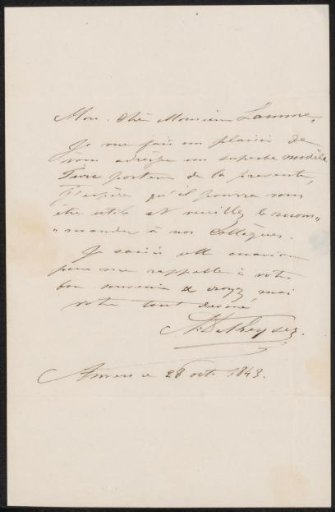 Mon cher Monsieur Lamme,
Je me fais un plaisir de
vous envoyer un superbe modèle
porteur de la presente,
J'espère qu'il pourra vous
être utile et veuillez le recom„
„mander à nos Collègues.
Je saisis cette occasion
pour me rappeller à votre
bon souvenir & croyez moi
votre tout devoué
N. De Keyser.
Anvers ce 28 oct. 1843.